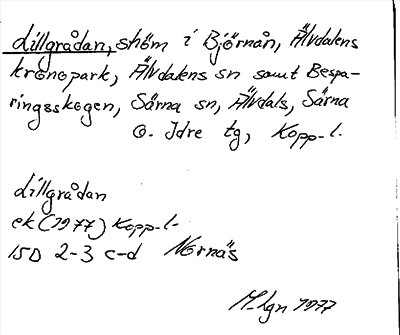 Lillgrådan, ström i Björnån, Älvdalens
kronopark, Älvdalens sn samt Bespa-
ringsskogen, Särna sn, Älvdals, Särna
o. Idre tg, Kopp-l.
Lillgrådan
ek (1977) Kopp-l-
15D 2-3 c-d Nornäs
M-lgn 1977